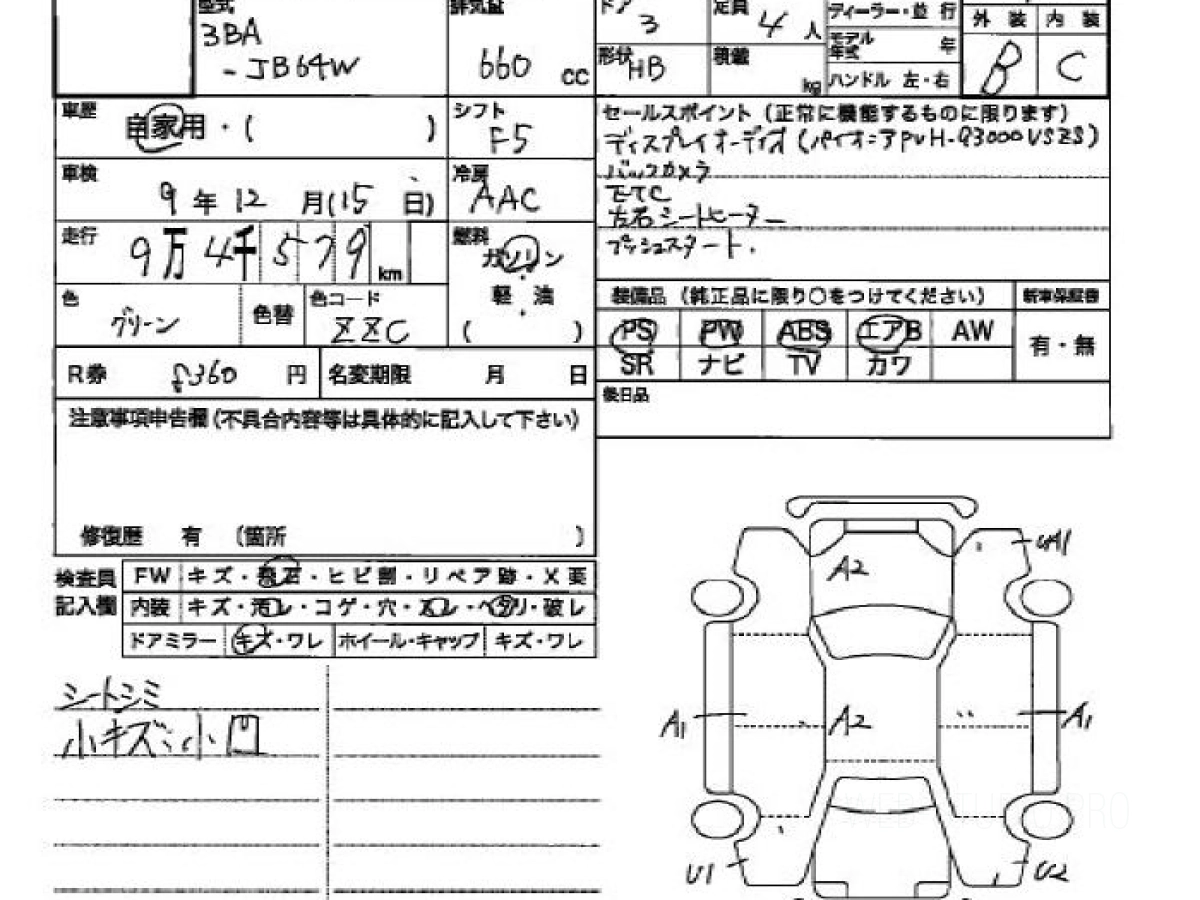 型式 排気量 ドア 3 定員 4 人 ディーラー・並行 外装 内装
3BA モデル年式 年
-JB64W 660 cc 形状 HB 積載 kg ハンドル 左・右 B C
車歴 自家用・( ) シフト F5 セールスポイント (正常に機能するものに限ります)
ディスプレイオーディオ (パイオニア
バックカメラ
車検 9年12月(15日) 冷房 AAC
ETC
左右シートヒーター
走行 9万4千579km 燃料 ガソリン
プッシュスタート.
軽油
( )
色 グリーン 色替 色コード ZZC
装備品 (純正品に限り○をつけてください) 新車保証書
PS PW ABS エアB AW 有・無
SR ナビ TV カワ
R券 8360 円 名変期限 月 日
後日品
注意事項申告欄(不具合内容等は具体的に記入して下さい)
修復歴 有 (箇所 )
検査員記入欄 FW キズ・飛石・ヒビ割・リペア跡・X要
内装 キズ・汚レ・コゲ・穴・スレ・ヘタリ・破レ
ドアミラー キズ・ワレ ホイール・キャップ キズ・ワレ
シートシミ
小キズ:小凹
A2
A1 A2 A1
U1 U2